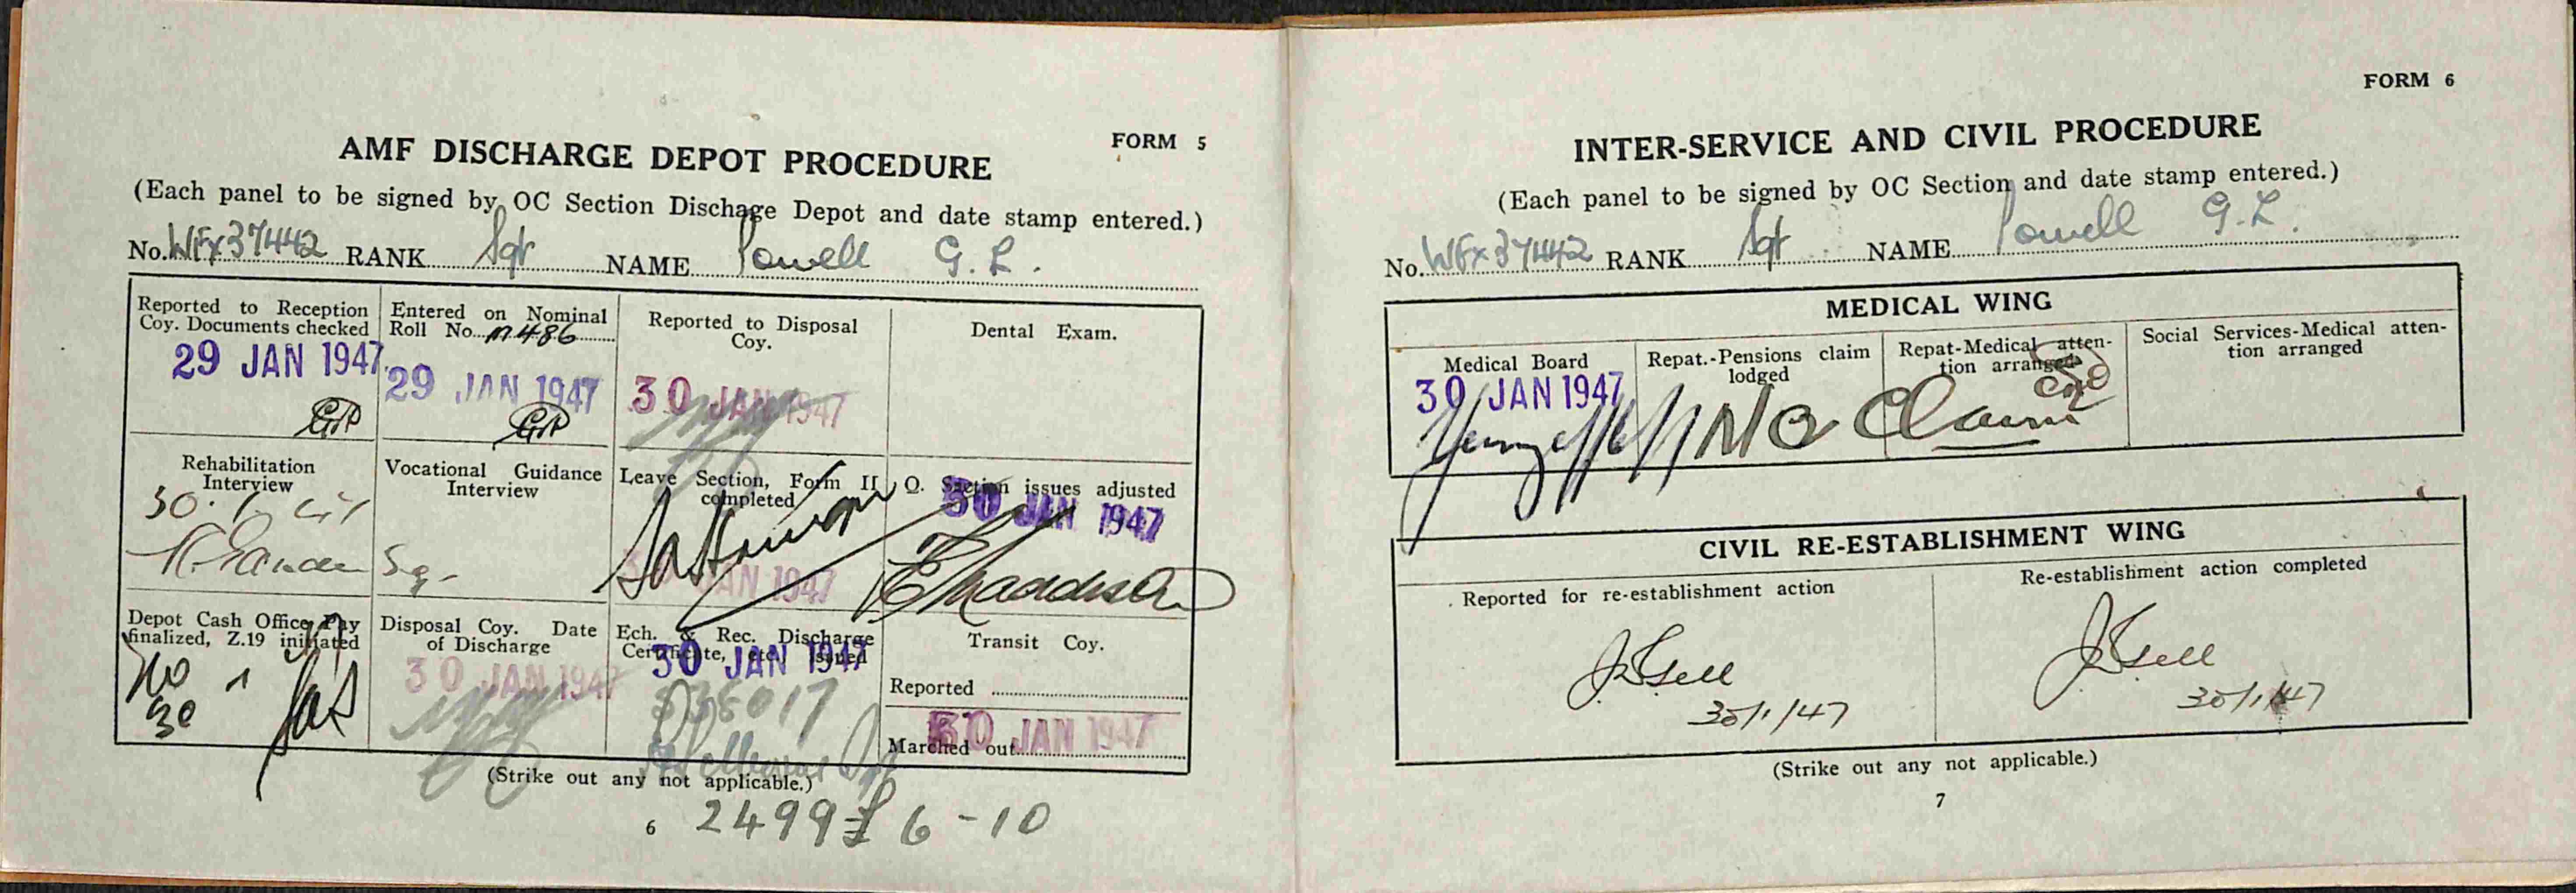 FORM 5
AMF DISCHARGE DEPOT PROCEDURE
(Each panel to be signed by OC Section Dischage Depot and date stamp entered.)
No. WFX37442 RANK Sgt NAME Powell G. L.
Reported to Reception
Coy. Documents checked
29 JAN 1947
Entered on Nominal
Roll No. M486
29 JAN 1947
Reported to Disposal
Coy.
30 JAN 1947
Dental Exam.
Rehabilitation
Interview
30.1.47
Vocational Guidance
Interview
Leave Section, Form II
completed
30 JAN 1947
Q. Section issues adjusted
30 JAN 1947
Depot Cash Office, Pay
finalized, Z.19 initiated
30
Disposal Coy. Date
of Discharge
30 JAN 1947
Ech. & Rec. Discharge
Certificate, etc. issued
30 JAN 1947
Transit Coy.
Reported
Marched out
30 JAN 1947
(Strike out any not applicable.)
6
2499 £6-10
FORM 6
INTER-SERVICE AND CIVIL PROCEDURE
(Each panel to be signed by OC Section and date stamp entered.)
No. WFX37442 RANK Sgt NAME Powell G. L.
MEDICAL WING
Medical Board
30 JAN 1947
Repat.-Pensions claim
lodged
Repat-Medical atten-
tion arranged
No Claim
Social Services-Medical atten-
tion arranged
CIVIL RE-ESTABLISHMENT WING
Reported for re-establishment action
30/1/47
Re-establishment action completed
30/1/47
(Strike out any not applicable.)
7